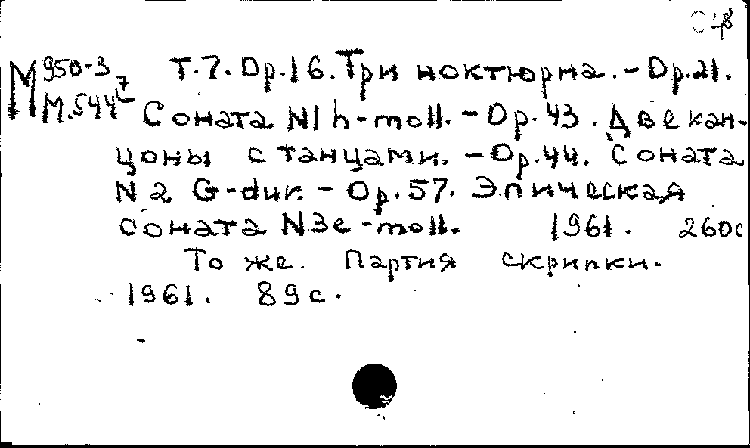 М 950-3 Т.7. Op.16. Три ноктюрна. - Op.21.
М.544 7 Соната N1 h-moll. - Op.43. Две кан-
цоны с танцами. - Op.44. Соната
N 2 G-dur. - Op.57. Эпическая
соната N3 e-moll. 1961. 260с
То же. Партия скрипки.
1961. 89с.